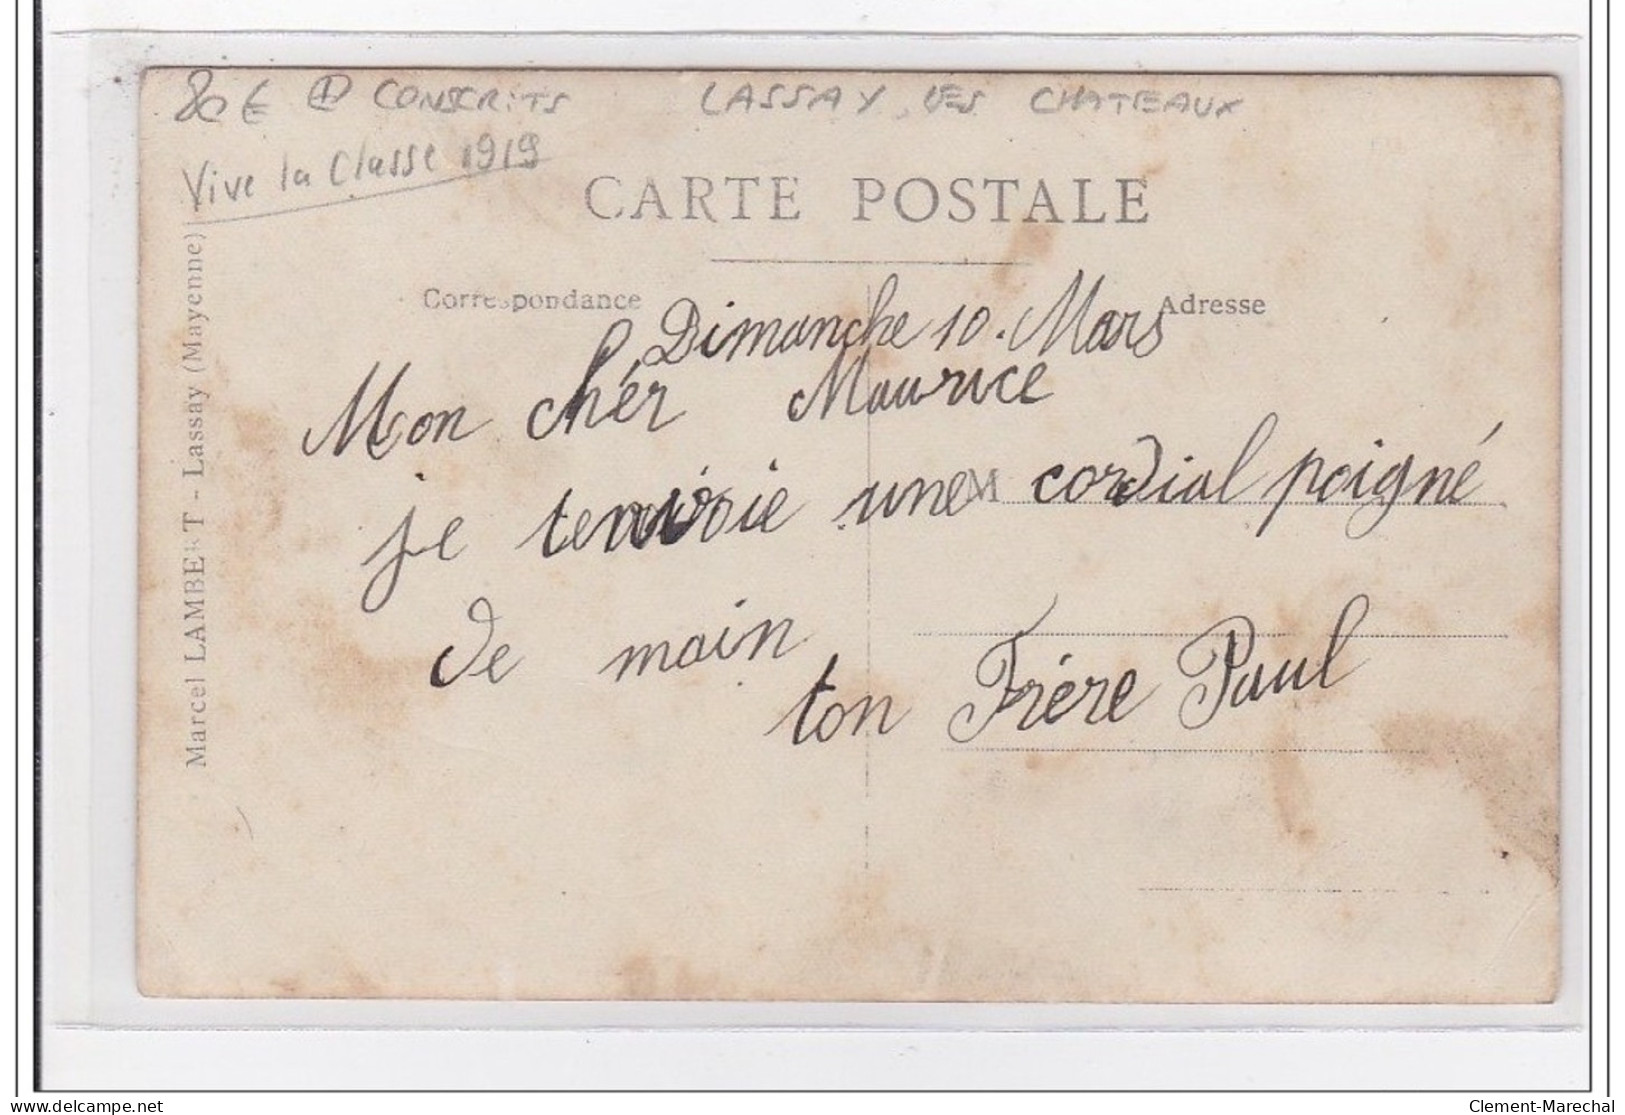 80 € CONSCRITS LASSAY LES CHATEAUX
Vive la Classe 1919
CARTE POSTALE
Correspondance
Adresse
Dimanche 10. Mars
Mon chér Maurice
je tenvoie une cordial poigné
M
de main
ton Frère Paul
Marcel LAMBERT - Lassay (Mayenne)
www.delcampe.net
Clement-Marechal